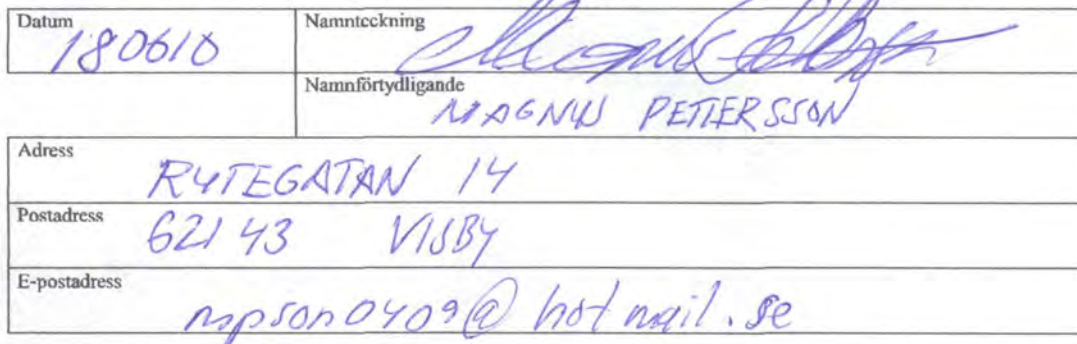 Datum Namnteckning
180610
Namnförtydligande
MAGNUS PETTERSSON
Adress
RUTEGATAN 14
Postadress
621 43 VISBY
E-postadress
mpson0409@hotmail.se